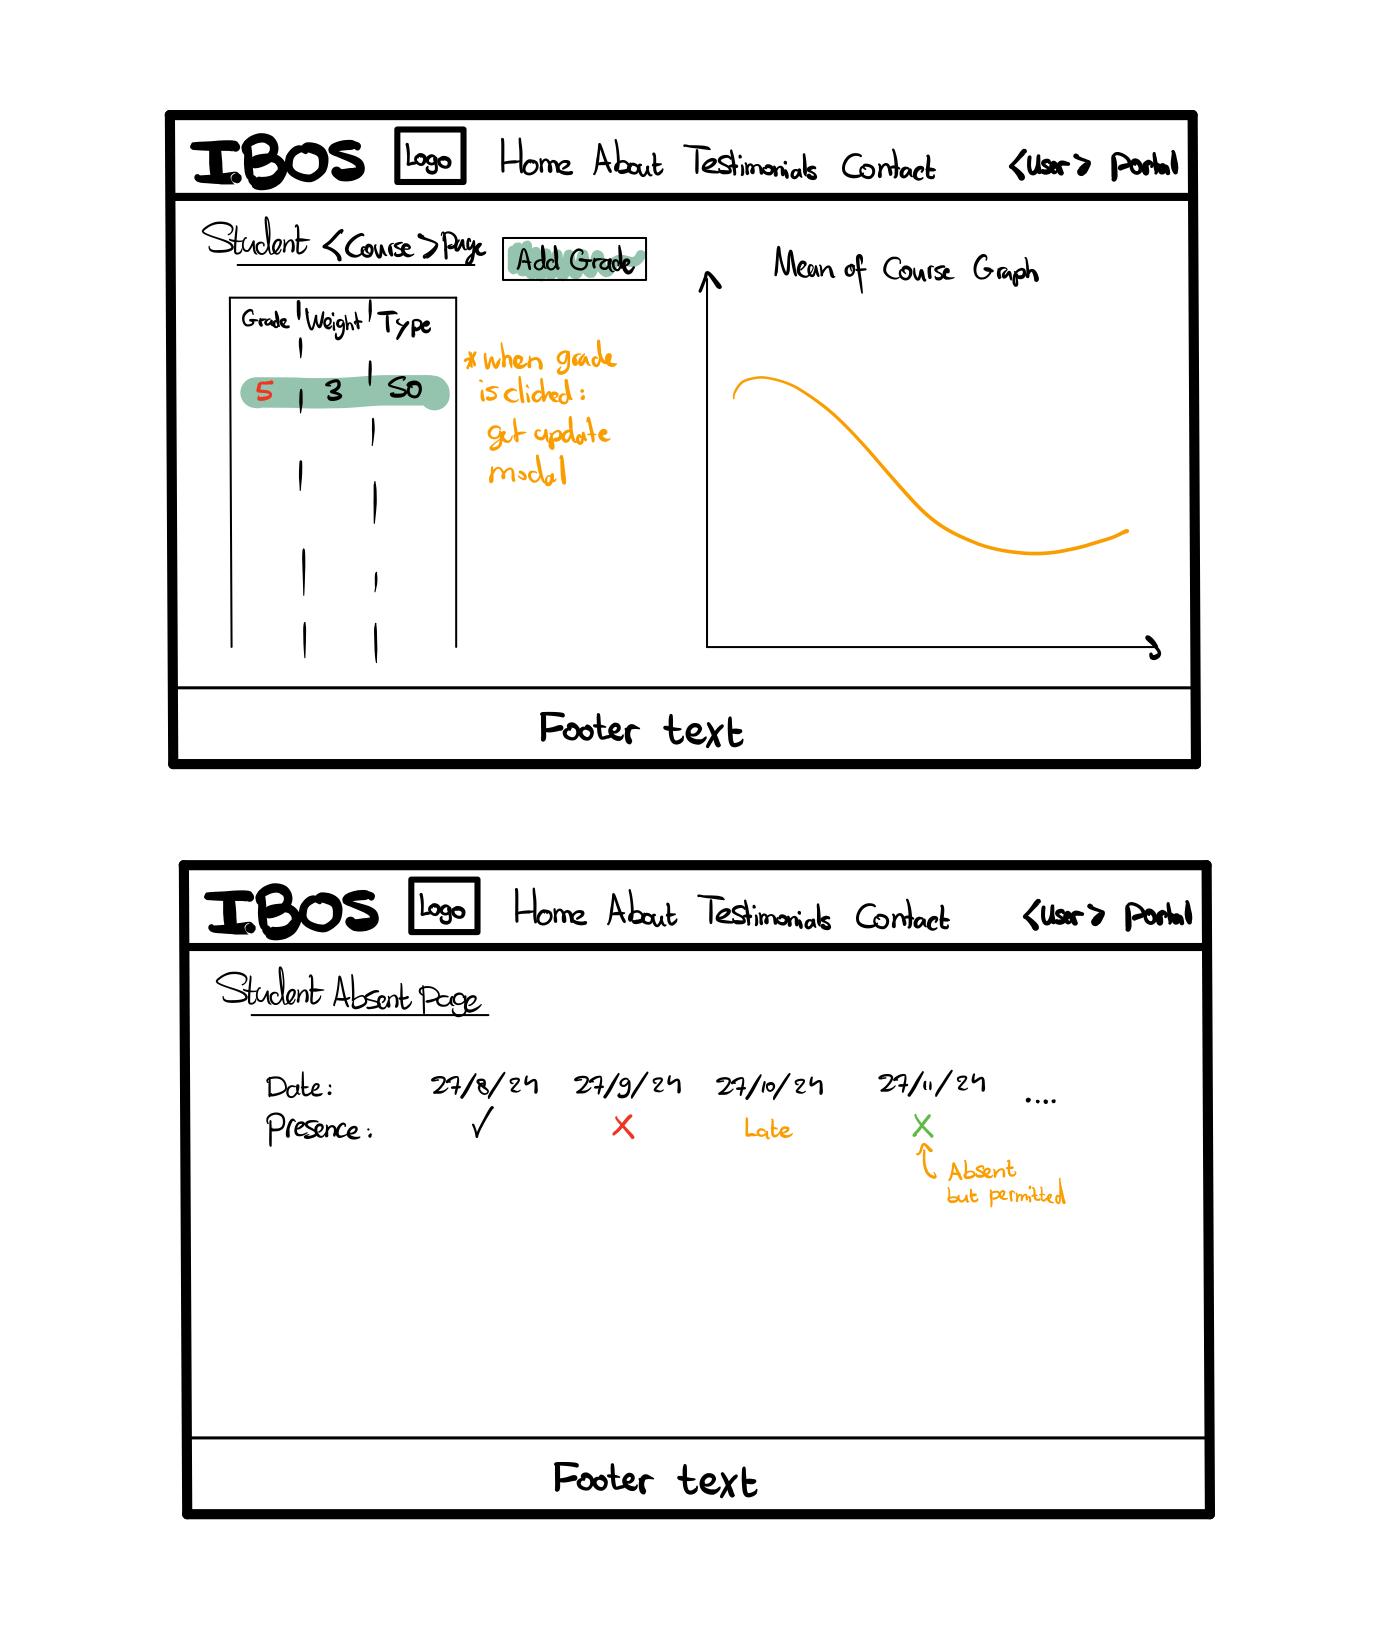 I.BOS Logo Home About Testimonials Contact <User> Portal
Student <Course> Page
Add Grade
Mean of Course Graph
Grade Weight Type
5 3 SO
* when grade
is clicked:
get update
modal
Footer text
I.BOS Logo Home About Testimonials Contact <User> Portal
Student Absent Page
Date: 27/8/24 27/9/24 27/10/24 27/11/24 ....
Presence: ✓ X Late X
Absent
but permitted
Footer text